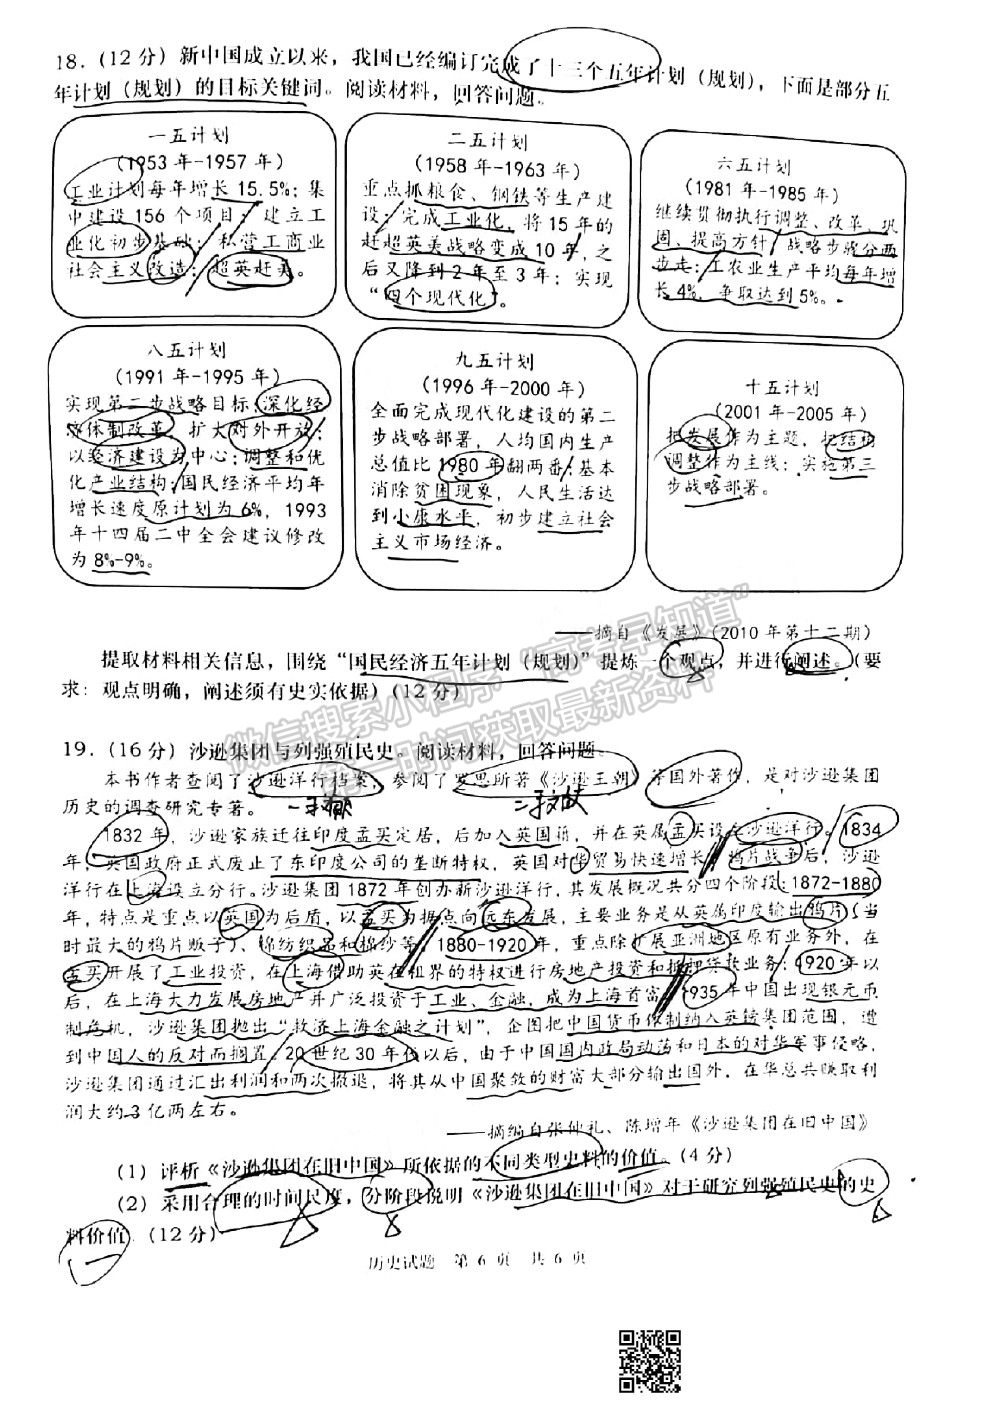 18.(12分)新中国成立以来，我国已经编订完成了十三个五年计划（规划），下面是部分五
年计划（规划）的目标关键词。阅读材料，回答问题。
一五计划
(1953年-1957年)
工业计划每年增长15.5%；集
中建设156个项目；建立工
业化初步基础；私营工商业
社会主义改造；超英赶美。
二五计划
(1958年-1963年)
重点抓粮食、钢铁等生产建
设；完成工业化，将15年的
赶超英美战略变成10年，之
后又降到2年至3年；实现
“四个现代化”。
六五计划
(1981年-1985年)
继续贯彻执行调整、改革、巩
固、提高方针；战略步骤分两
步走；工农业生产平均每年增
长4%，争取达到5%。
八五计划
(1991年-1995年)
实现第二步战略目标；深化经
济体制改革，扩大对外开放；
以经济建设为中心；调整和优
化产业结构；国民经济平均年
增长速度原计划为6%，1993
年十四届二中全会建议修改
为8%-9%。
九五计划
(1996年-2000年)
全面完成现代化建设的第二
步战略部署，人均国内生产
总值比1980年翻两番；基本
消除贫困现象，人民生活达
到小康水平，初步建立社会
主义市场经济。
十五计划
(2001年-2005年)
把发展作为主题，把结构
调整作为主线；实施第三
步战略部署。
——摘自《发展》(2010年第十二期)
提取材料相关信息，围绕“国民经济五年计划（规划）”提炼一个观点，并进行阐述。（要
求：观点明确，阐述须有史实依据）(12分)
微信搜索小程序“高考早知道”
第一时间获取最新资料
19.(16分)沙逊集团与列强殖民史。阅读材料，回答问题。
本书作者查阅了沙逊洋行档案，参阅了罗思所著《沙逊王朝》等国外著作，是对沙逊集团
历史的调查研究专著。
1832年，沙逊家族迁往印度孟买定居，后加入英国籍，并在英属孟买设立沙逊洋行。1834
年，英国政府正式废止了东印度公司的垄断特权，英国对华贸易快速增长。鸦片战争后，沙逊
洋行在上海设立分行。沙逊集团1872年创办新沙逊洋行，其发展概况共分四个阶段：1872-1880
年，特点是重点以英国为后盾，以孟买为据点向远东发展，主要业务是从英属印度输出鸦片（当
时最大的鸦片贩子）、棉纺织品和棉纱等；1880-1920年，重点除扩展亚洲地区原有业务外，在
孟买开展了工业投资，在上海借助英在租界的特权进行房地产投资和抵押放款业务；1920年以
后，在上海大力发展房地产并广泛投资于工业、金融，成为上海首富，1935年中国出现银元币
制危机，沙逊集团抛出“救济上海金融之计划”，企图把中国货币体制纳入英镑集团范围，遭
到中国人的反对而搁置；20世纪30年代以后，由于中国国内政局动荡和日本的对华军事侵略，
沙逊集团通过汇出利润和两次撤退，将其从中国聚敛的财富大部分输出国外，在华总共赚取利
润大约3亿两左右。
——摘编自张仲礼、陈增年《沙逊集团在旧中国》
(1) 评析《沙逊集团在旧中国》所依据的不同类型史料的价值。(4分)
(2) 采用合理的时间尺度，分阶段说明《沙逊集团在旧中国》对于研究列强殖民史的史
料价值。(12分)
历史试题 第6页 共6页